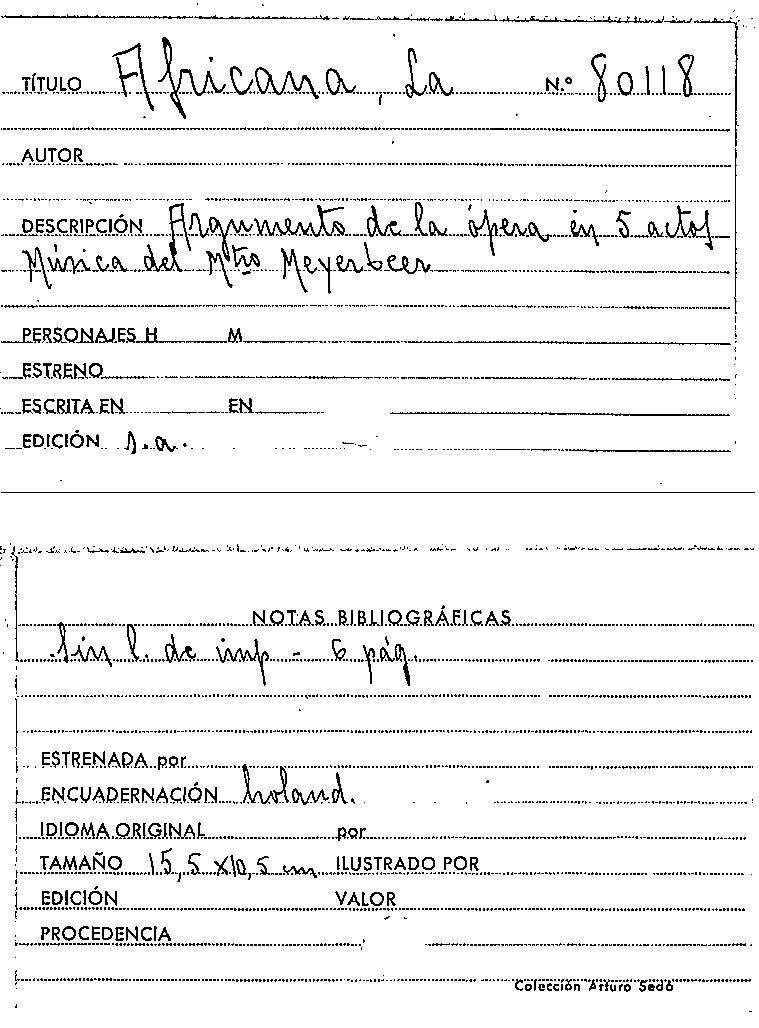 TÍTULO Africana, La N.º 80118
AUTOR
DESCRIPCIÓN Argumento de la ópera en 5 actos
Música del Mtro Meyerbeer
PERSONAJES H M
ESTRENO
ESCRITA EN EN
EDICIÓN s.a.
NOTAS BIBLIOGRÁFICAS
Sin l. de imp - 6 pág.
ESTRENADA por
ENCUADERNACIÓN holand.
IDIOMA ORIGINAL por
TAMAÑO 15,5 x 10,5 cm ILUSTRADO POR
EDICIÓN VALOR
PROCEDENCIA
Colección Arturo Sedó